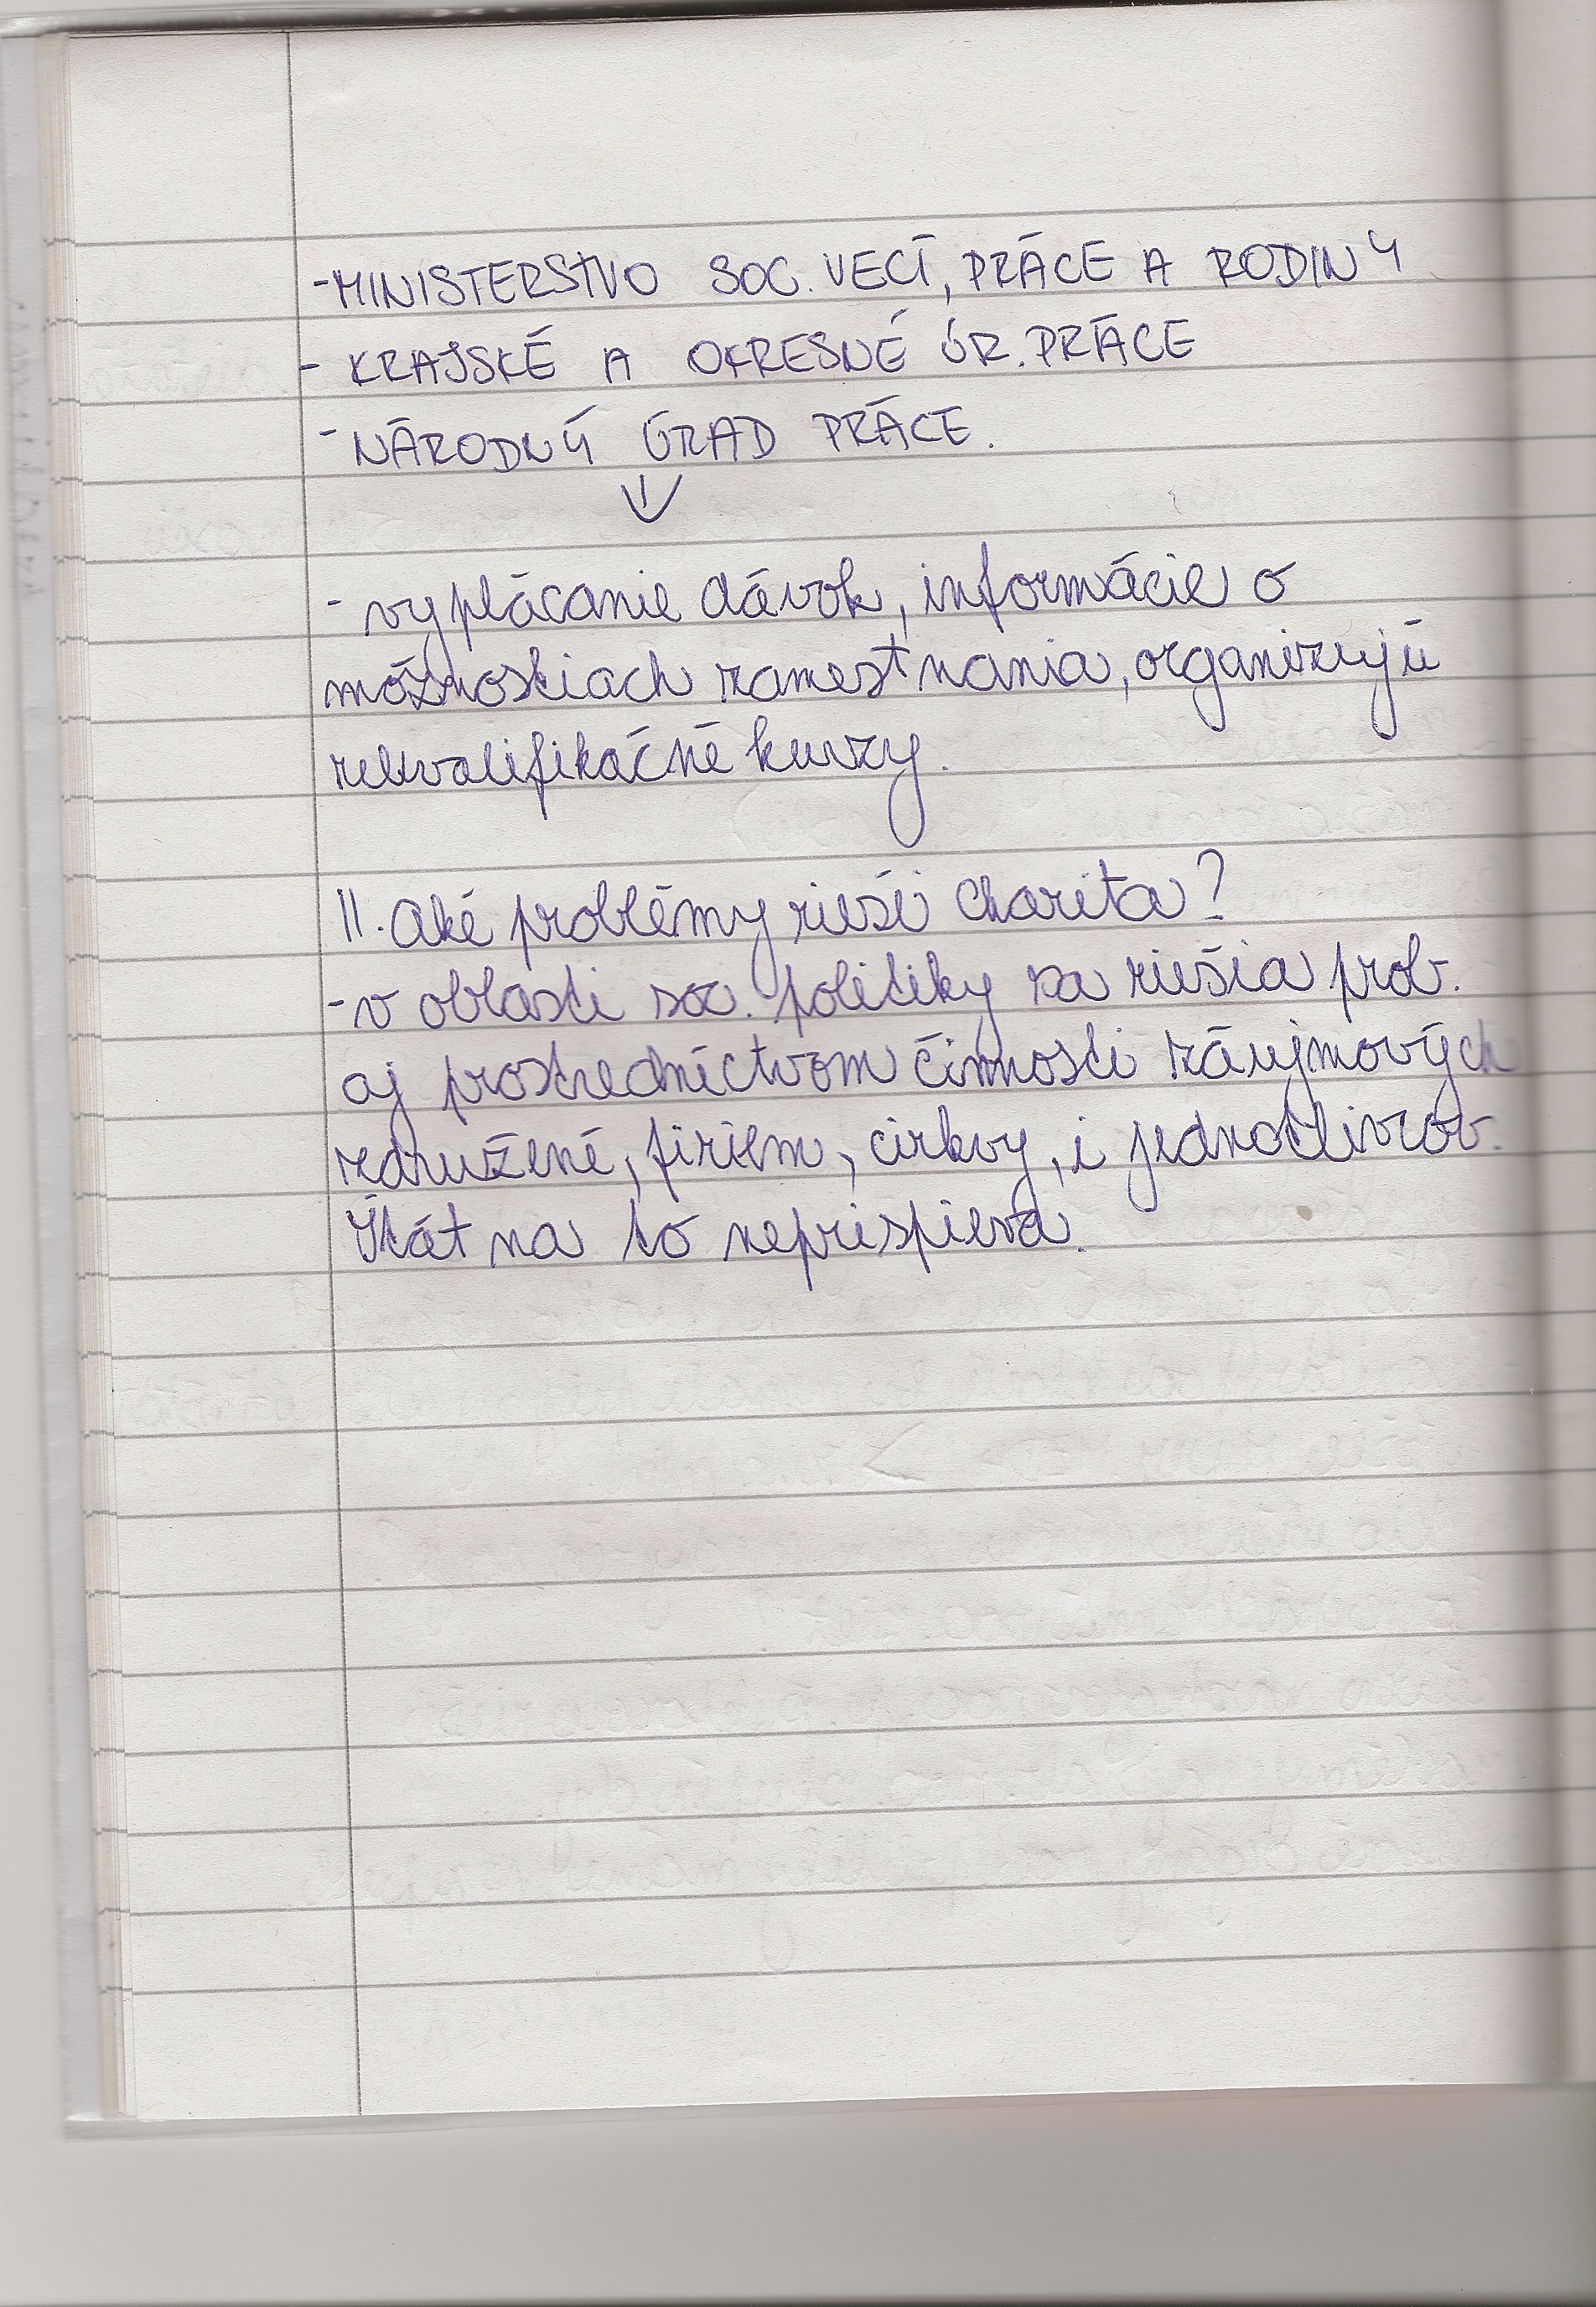 -MINISTERSTVO SOC. VECÍ, PRÁCE A RODINY
- KRAJSKÉ A OKRESNÉ ÚR. PRÁCE
- NÁRODNÝ ÚRAD PRÁCE.
↓
- vyplácanie dávok, informácie o
možnostiach zamestnania, organizujú
rekvalifikačné kurzy.
11. Aké problémy rieši charita?
- v oblasti soc. politiky sa riešia prob.
aj prostredníctvom činnosti záujmových
združené, firiem, cirkvy, i jednotlivcov.
Štát na to neprispieva.